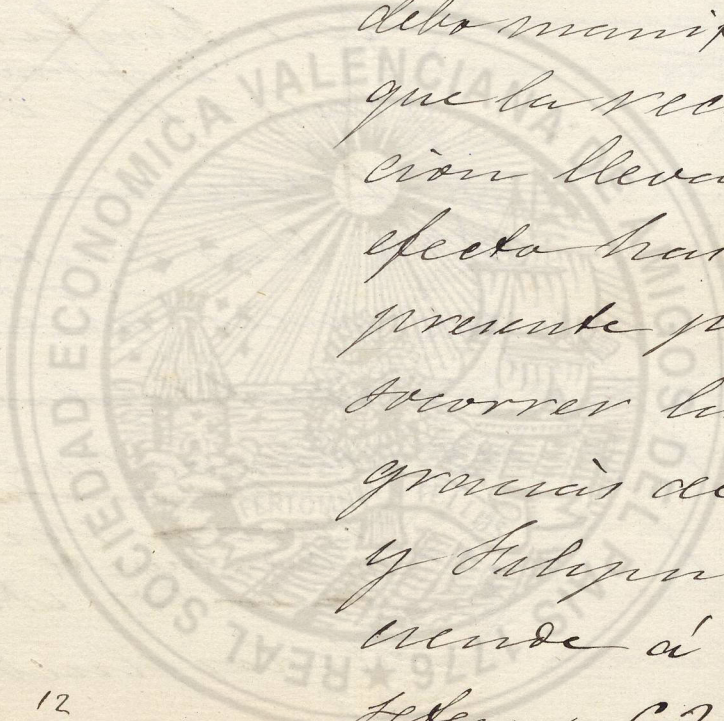 debo manif
que la rec
cion lleva
efecto has
presente p
socorrer la
gracias de
y Filipin
ciende á
12
REAL SOCIEDAD ECONOMICA VALENCIANA DE AMIGOS DEL PAIS 1776